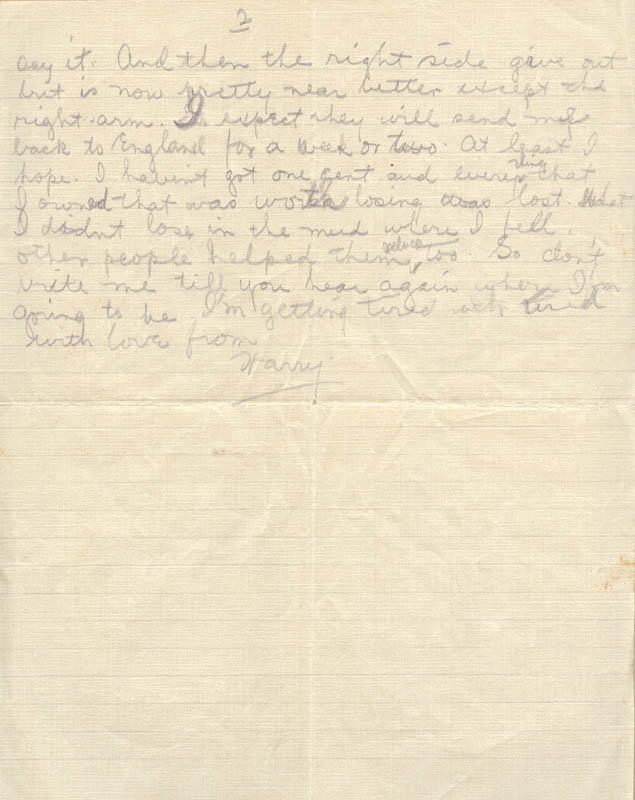 2
say it. And then the right side gave out
but is now pretty near better except the
right arm. I expect they will send me
back to England for a week or two. At least I
hope. I havent got one cent and every thing that
I owned that was worth losing was lost. What
I didnt lose in the mud where I fell.
other people helped them selves too. So don't
write me till you hear again where I'm
going to be I'm getting tired tired
With love from
Harry